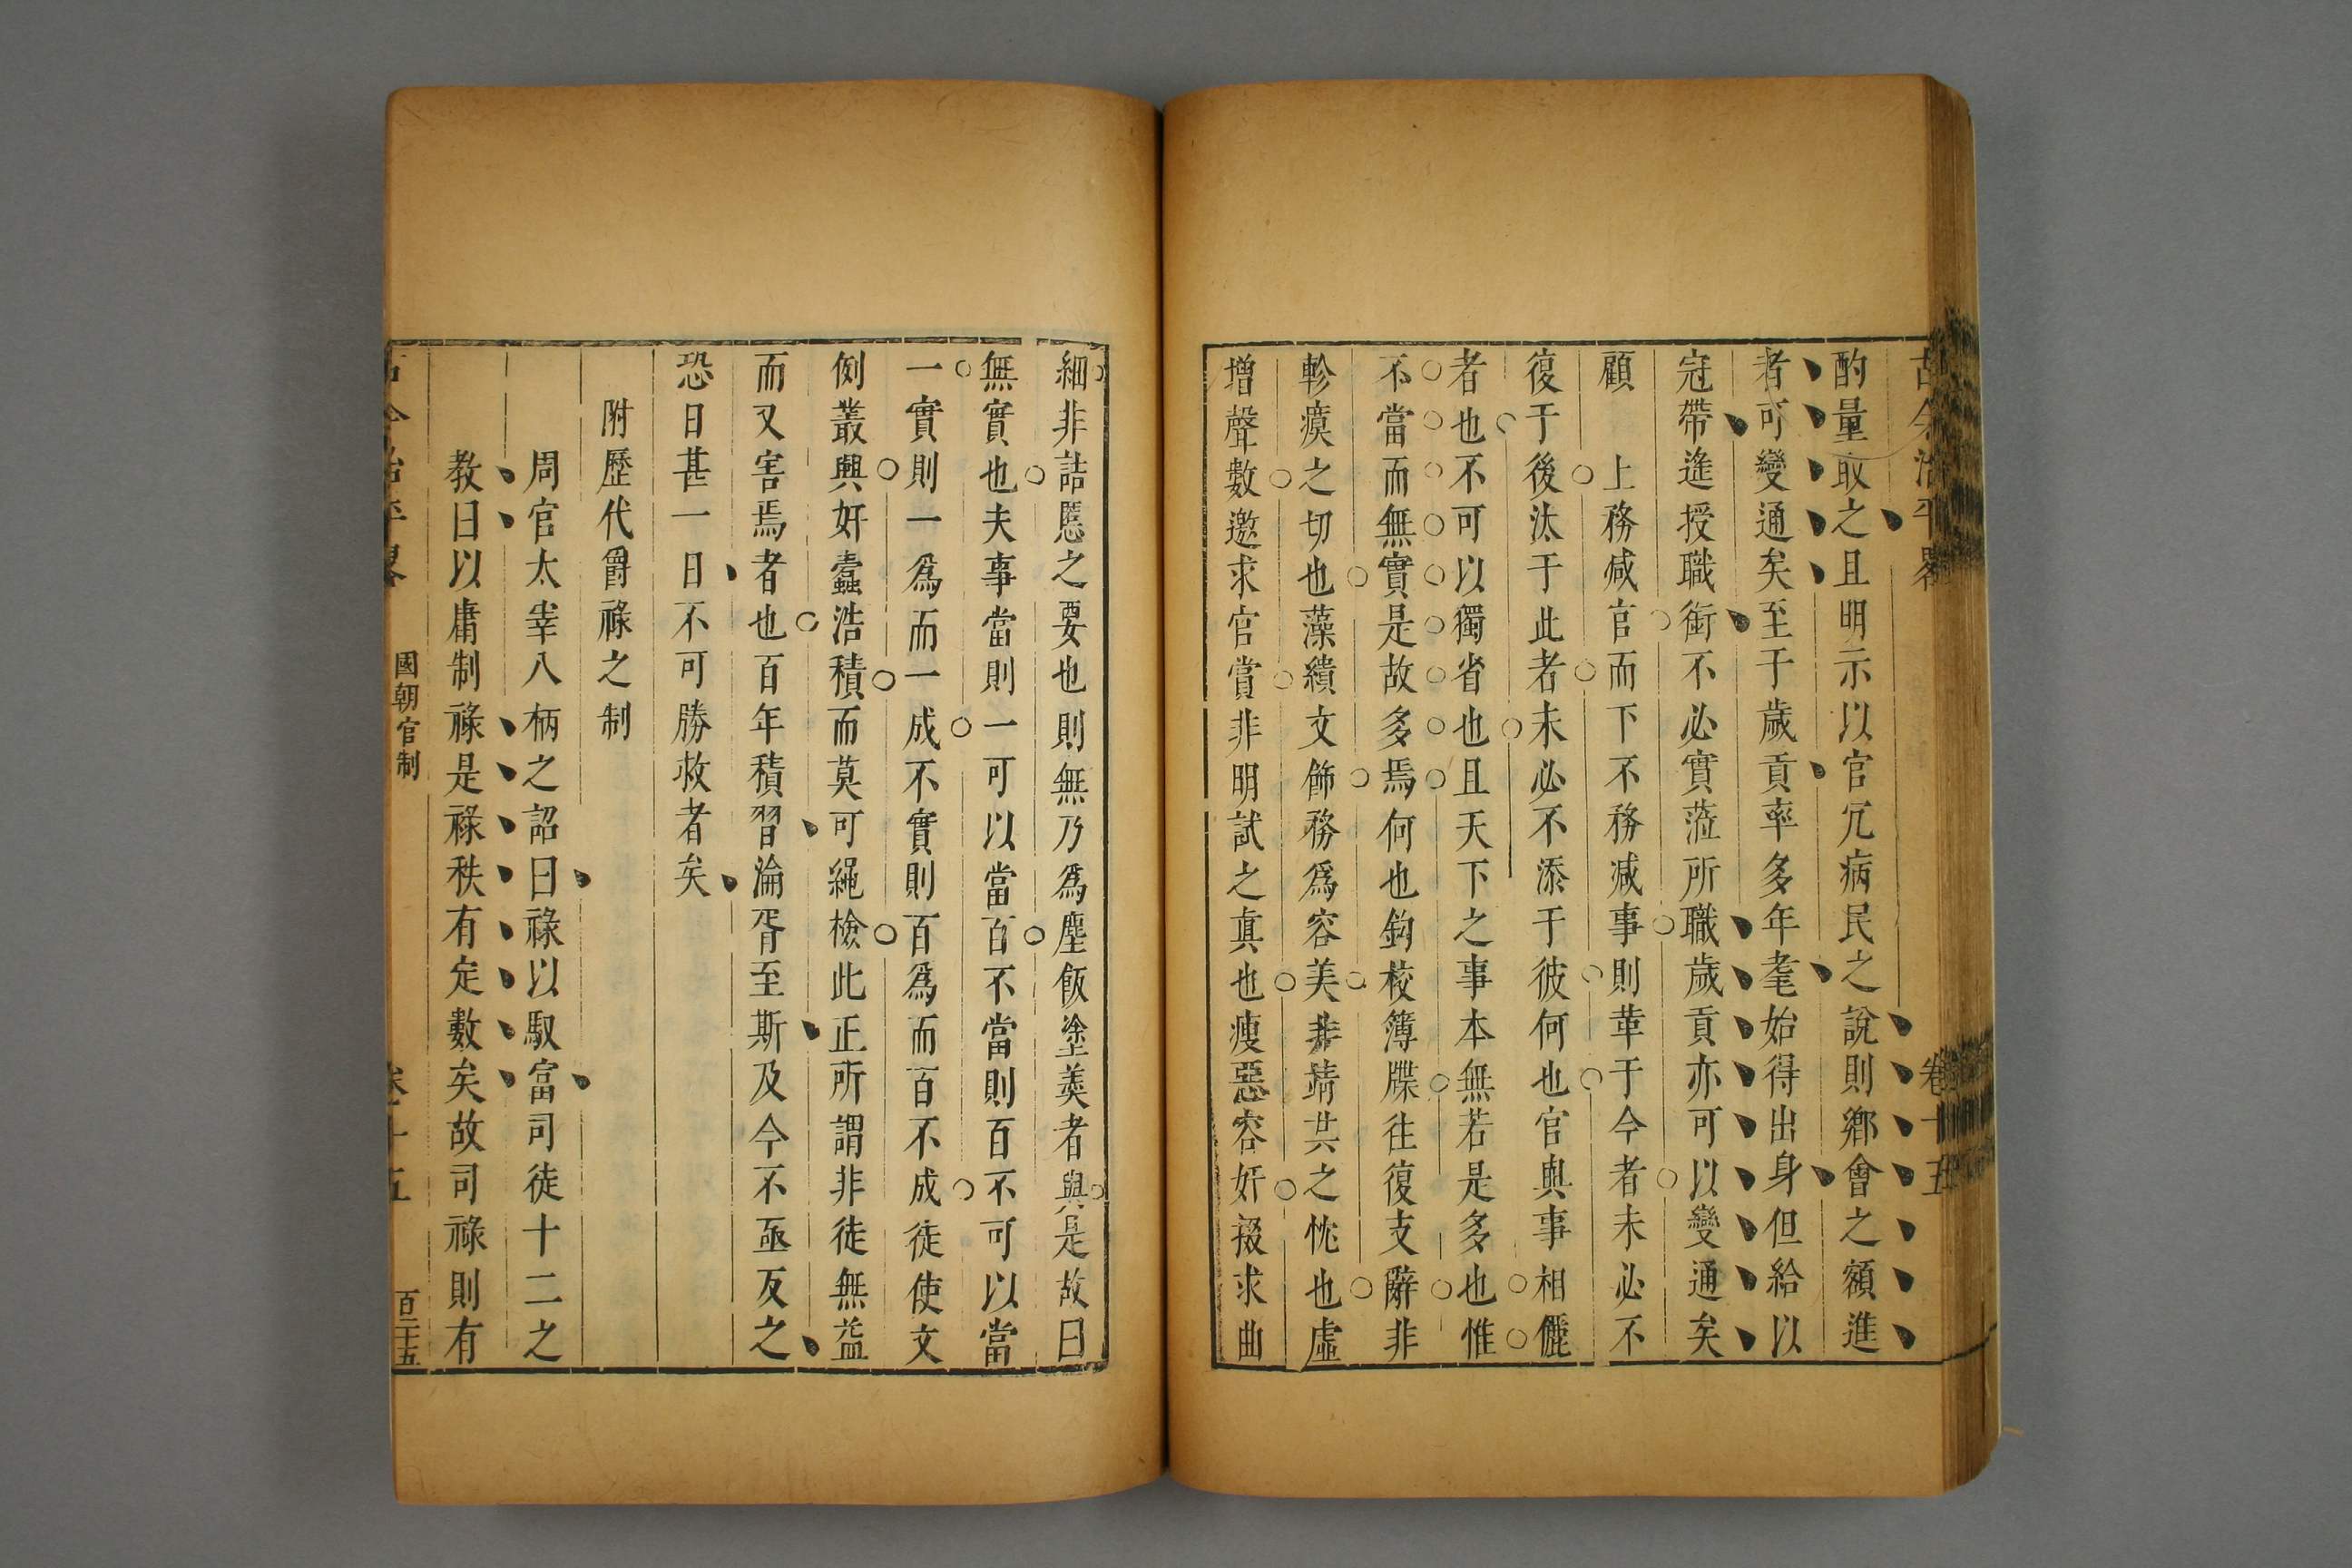 古今治平畧 卷十五
酌量取之且明示以官冗病民之說則鄉會之額進
者可變通矣至于歲貢率多年耄始得出身但給以
冠帶進授職銜不必實蒞所職歲貢亦可以變通矣
顧　上務减官而下不務减事則革于今者未必不
復于後汰于此者未必不添于彼何也官與事相儷
者也不可以獨省也且天下之事本無若是多也惟
不當而無實是故多焉何也鈎校簿牒往復支辭非
軫瘼之切也藻繢文飾務爲容美非靖共之恱也虛
增聲數邀求官賞非明試之真也瘦惡容奸掇求曲
細非詰慝之要也則無乃爲塵飯塗羹者與是故曰
無實也夫事當則一可以當百不當則百不可以當
一實則一爲而一成不實則百爲而百不成徒使文
例叢興奸蠹浩積而莫可繩檢此正所謂非徒無益
而又害焉者也百年積習淪胥至斯及今不亟反之
恐日甚一日不可勝救者矣
附歷代爵祿之制
周官太宰八柄之詔曰祿以馭富司徒十二之
教曰以庸制祿是祿秩有定數矣故司祿則有
古今治平畧 國朝官制 卷十五 百三十五